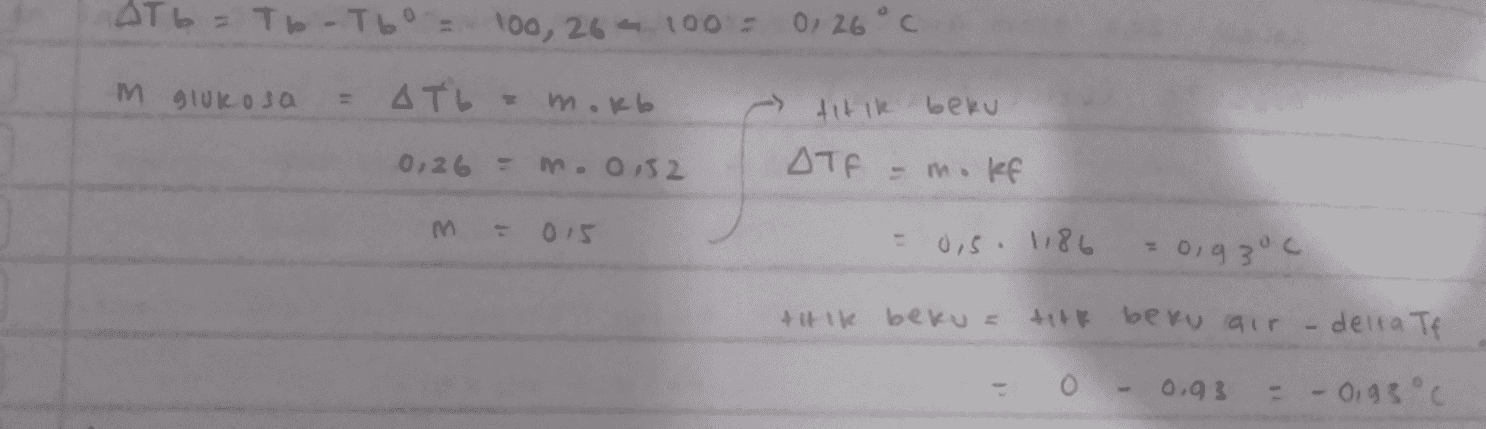 ΔTb = Tb - Tb° = 100,26 - 100 = 0,26°C
m glukosa = ΔTb = m . kb
0,26 = m . 0,52
m = 0,5
→ titik beku
ΔTf = m . kf
= 0,5 . 1,86 = 0,93°C
titik beku = titik beku air - delta Tf
= 0 - 0,93 = -0,93°C